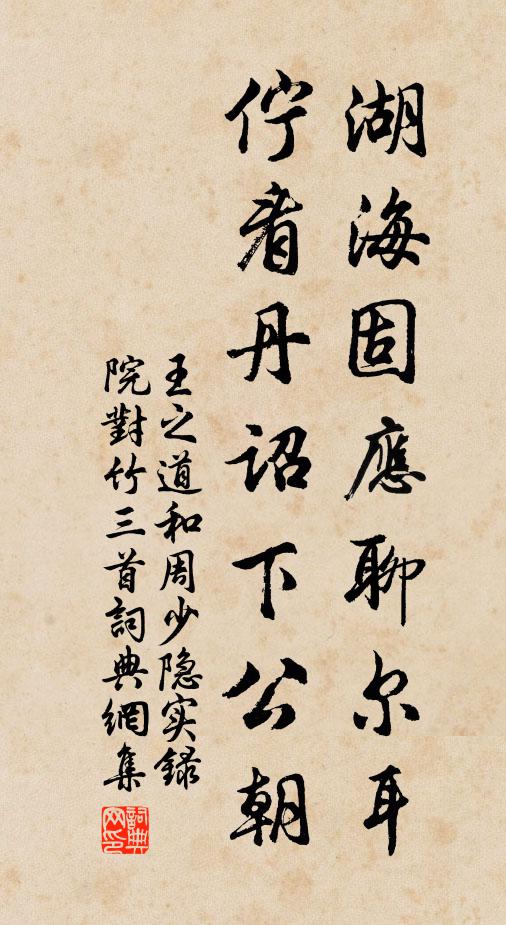 湖海固應聊尔耳
佇看丹詔下公朝
王之道和周少隐实錄
院對竹三首詞典網集
詞典网印